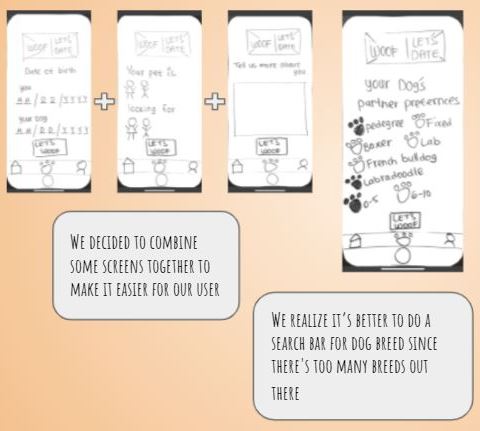 WOOF
LET'S
DATE
Date of birth
you
MM/DD/YYYY
your Dog
MM/DD/YYYY
LET'S
WOOF
+
WOOF
LET'S
DATE
Your pet is
looking for
LET'S
WOOF
+
WOOF
LET'S
DATE
Tell us more about
you
LET'S
WOOF
WOOF
LET'S
DATE
your Dog's
partner preferences
pedegree Fixed
Boxer Lab
French bulldog
Labradoodle
0-5 6-10
LET'S
WOOF
We decided to combine
some screens together to
make it easier for our user
We realize it's better to do a
search bar for dog breed since
there's too many breeds out
there